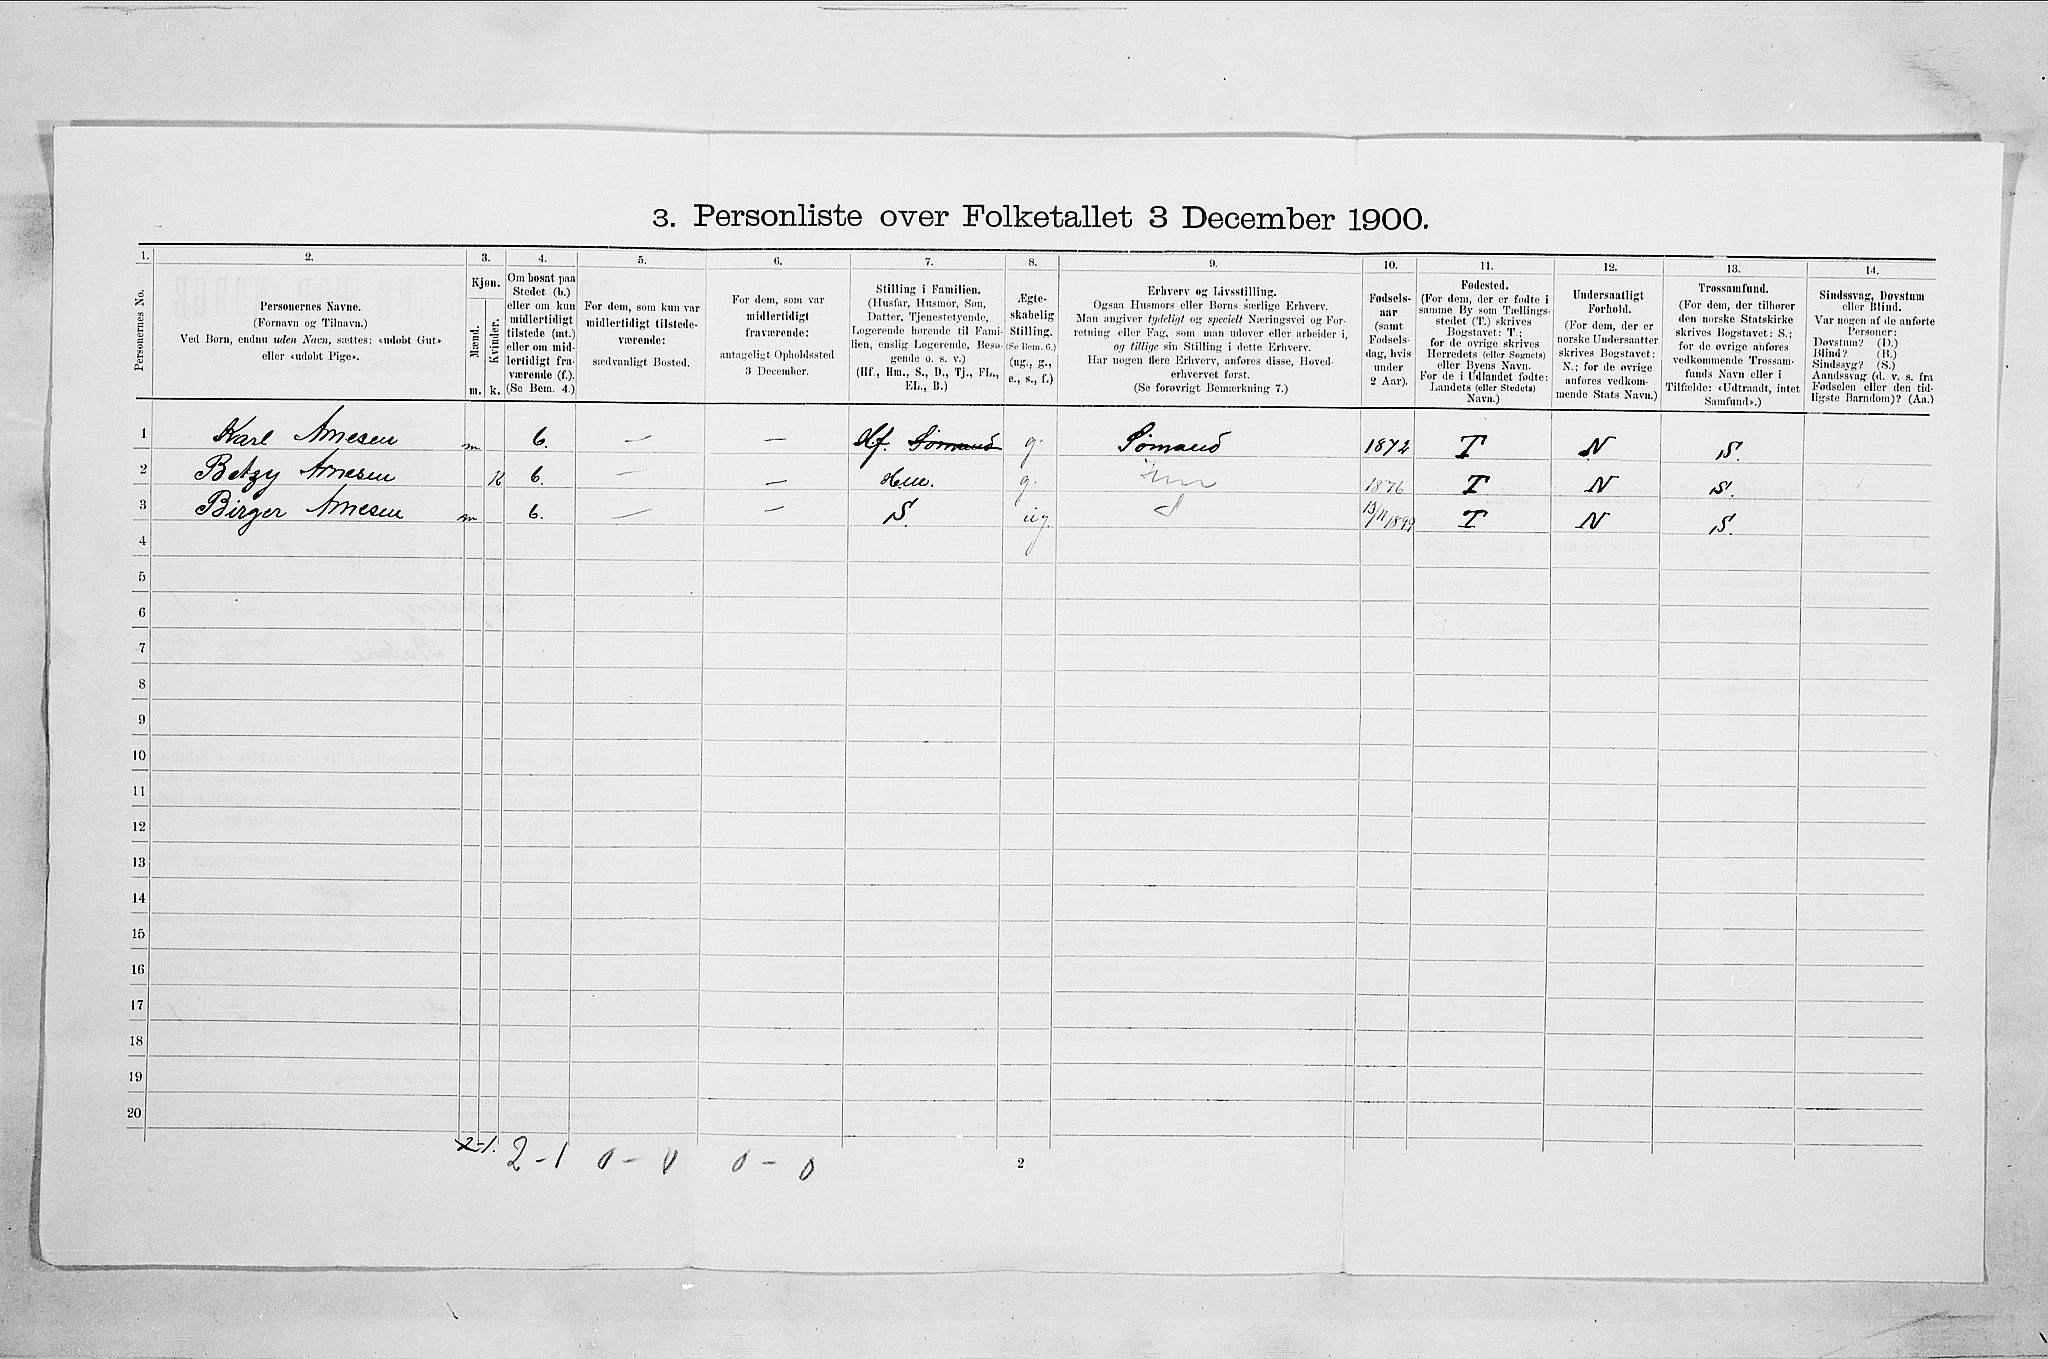 3. Personliste over Folketallet 3 December 1900.
1. 2. 3. 4. 5. 6. 7. 8. 9. 10. 11. 12. 13. 14.
Personernes No.
Personernes Navne.
(Fornavn og Tilnavn.)
Ved Børn, endnu uden Navn, sættes: «udøbt Gut»
eller «udøbt Pige».
Kjøn.
Mænd.
Kvinder.
m. k.
Om bosat paa
Stedet (b.)
eller om kun
midlertidigt
tilstede (mt.)
eller om mid-
lertidigt fra-
værende (f.).
(Se Bem. 4.)
For dem, som kun var
midlertidigt tilstede-
værende:
sædvanligt Bosted.
For dem, som var
midlertidigt
fraværende:
antageligt Opholdssted
3 December.
Stilling i Familien.
(Husfar, Husmor, Søn,
Datter, Tjenestetyende,
Logerende hørende til Fami-
lien, enslig Logerende, Besø-
gende o. s. v.)
(Hf., Hm., S., D., Tj., FL.,
EL., B.)
Ægte-
skabelig
Stilling.
(Se Bem. 6.)
(ug., g.,
e., s., f.)
Erhverv og Livsstilling.
Ogsaa Husmors eller Børns særlige Erhverv.
Man angiver tydeligt og specielt Næringsvei og For-
retning eller Fag, som man udøver eller arbeider i,
og tillige sin Stilling i dette Erhverv.
Har nogen flere Erhverv, anføres disse, Hoved-
erhvervet først.
(Se forøvrigt Bemærkning 7.)
Fødsels-
aar
(samt
Fødsels-
dag, hvis
under
2 Aar).
Fødested.
(For dem, der er fødte i
samme By som Tællings-
stedet (T.) skrives
Bogstavet: T.;
for de øvrige skrives
Herredets (eller Sognets)
eller Byens Navn.
For de i Udlandet fødte:
Landets (eller Stedets)
Navn.)
Undersaatligt
Forhold.
(For dem, der er
norske Undersaatter
skrives Bogstavet:
N.; for de øvrige
anføres vedkom-
mende Stats Navn.)
Trossamfund.
(For dem, der tilhører
den norske Statskirke
skrives Bogstavet: S.;
for de øvrige anføres
vedkommende Trossam-
funds Navn eller i
Tilfælde: «Udtraadt, intet
Samfund».)
Sindssvag, Døvstum
eller Blind.
Var nogen af de anførte
Personer:
Døvstum? (D.)
Blind? (B.)
Sindssyg? (S.)
Aandssvag (d. v. s. fra
Fødselen eller den tid-
ligste Barndom)? (Aa.)
1 Karl Arnesen m b. — — Hf. Sømand g. Sømand 1872 T N S.
2 Betzy Arnesen k b. — — Hm. g. Hm 1876 T N S.
3 Birger Arnesen m b. — — S. ug. S 13/11 1899 T N S.
4
5
6
7
8
9
10
11
12
13
14
15
16
17
18
19
20
2-1. 2-1 0-0 0-0
2